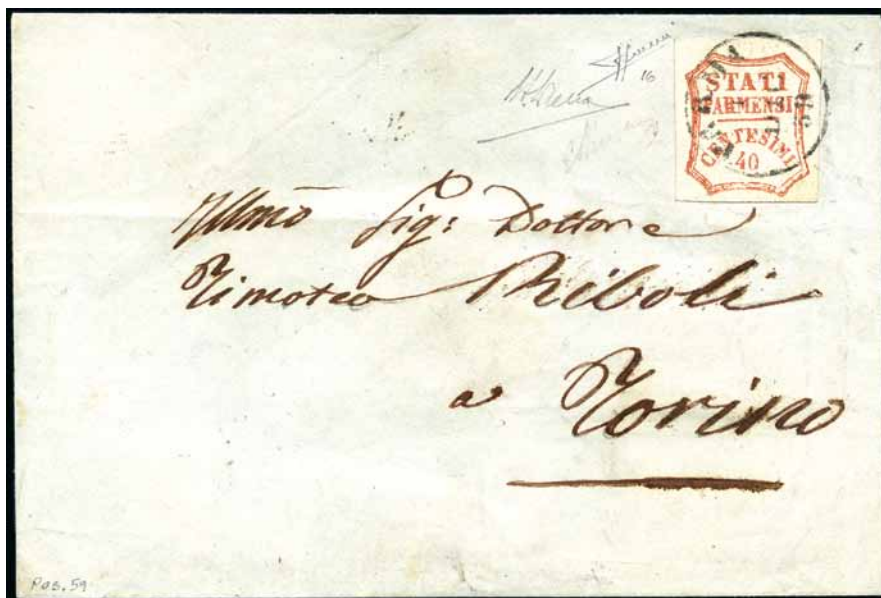 16
STATI
PARMENSI
CENTESIMI
40
Illmõ Sig: Dottore
Timoteo Riboli
a Torino
Pos. 59